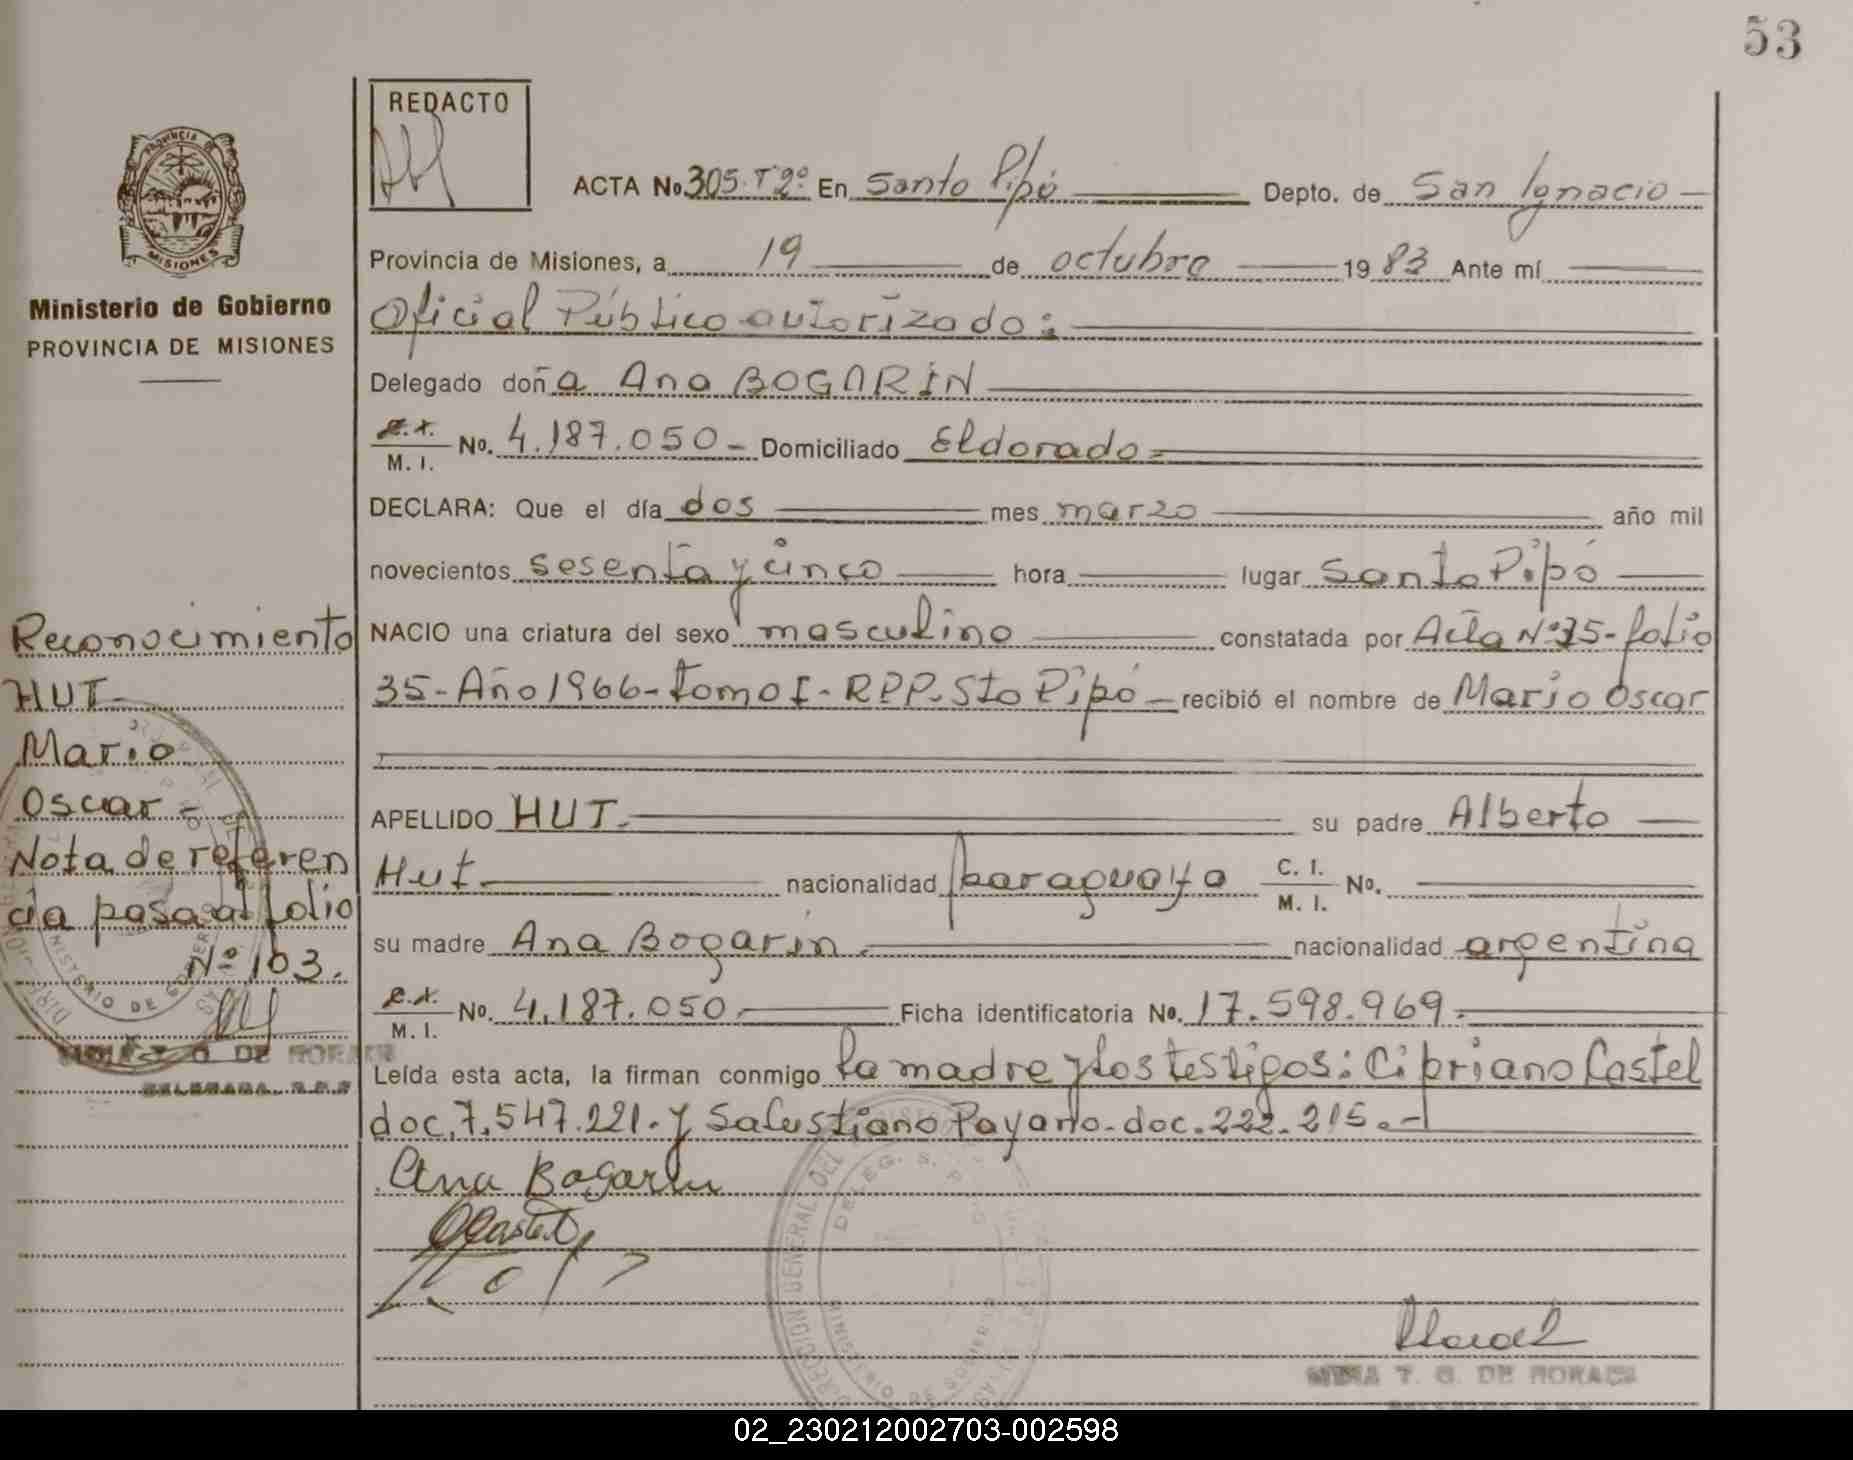 53
REDACTO
ACTA No. 305. T 2º En Santo Pipó Depto. de San Ignacio
PROVINCIA DE
MISIONES
Ministerio de Gobierno
PROVINCIA DE MISIONES
Provincia de Misiones, a 19 de octubre 1983 Ante mí
Oficial Público autorizado:
Delegado doña Ana BOGARIN
M. I. No. 4.187.050 - Domiciliado Eldorado -
DECLARA: Que el día dos mes marzo año mil
novecientos sesenta y cinco hora lugar Santo Pipó
NACIO una criatura del sexo masculino constatada por Acta Nº 35 - folio
35 - Año 1966 - tomo I - RPP. Sto Pipó - recibió el nombre de Mario Oscar
APELLIDO HUT. su padre Alberto
Hut nacionalidad paraguaya C. I. M. I. No.
su madre Ana Bogarin. nacionalidad argentina
M. I. No. 4.187.050 - Ficha identificatoria No. 17.598.969.
Leída esta acta, la firman conmigo la madre y los testigos: Cipriano Castel
doc. 7.547.221. y Salustiano Payano - doc. 222.215. -
Ana Bogarin
Reconocimiento
HUT
Mario
Oscar -
Nota de referen
cia pasa al folio
Nº 103.
DIRECCION GENERAL DEL
DELEG. S. P.
MINISTERIO DE GOBIERNO
T. G. DE MORAES
02_230212002703-002598